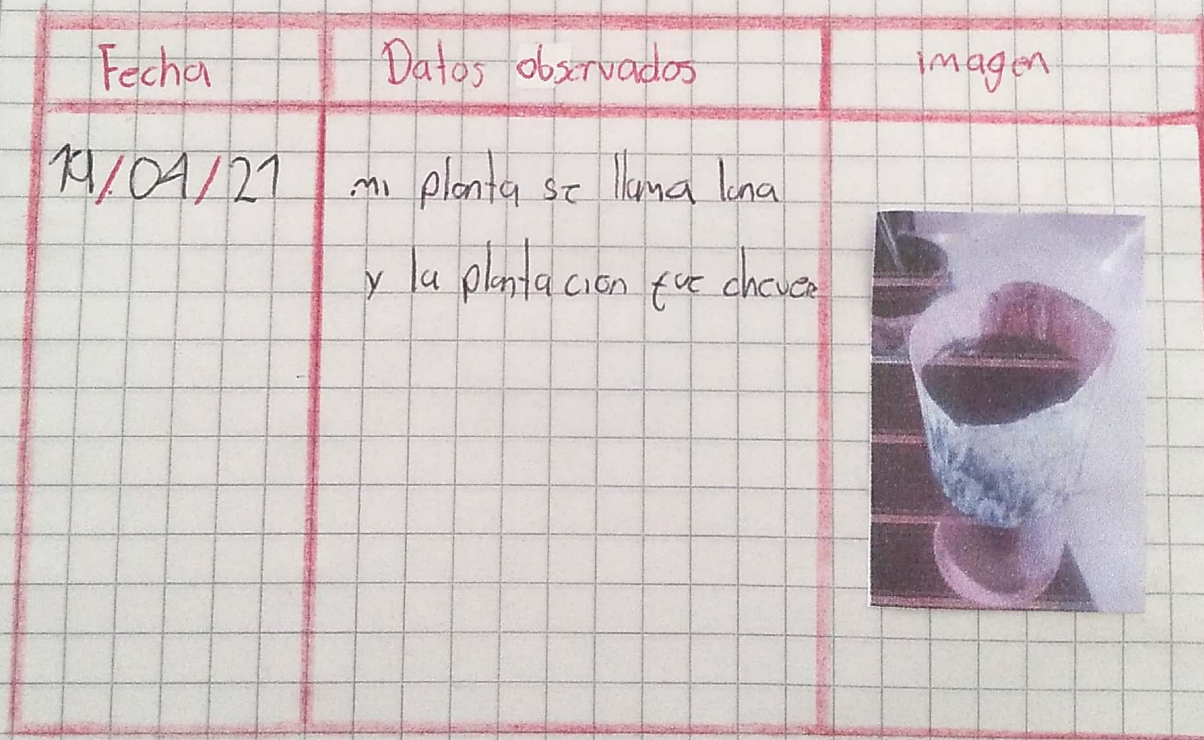 Fecha
Datos observados
imagen
19/04/21
mi planta se llama luna
y la plantacion fue chever